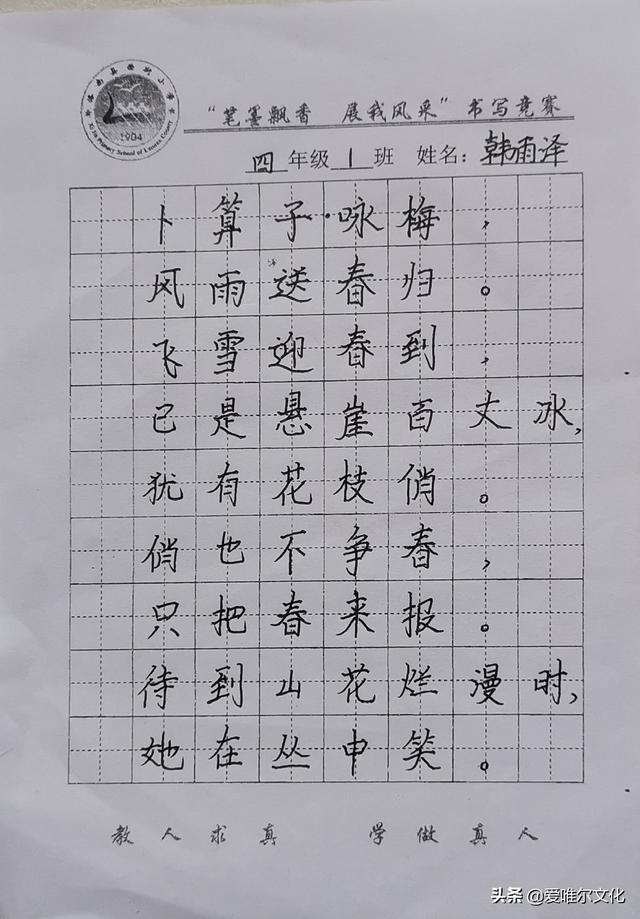 1904
Primary School of
“笔墨飘香 展我风采”书写竞赛
四年级1班 姓名：韩雨泽
卜算子·咏梅，
风雨送春归。
飞雪迎春到，
已是悬崖百丈冰，
犹有花枝俏。
俏也不争春，
只把春来报。
待到山花烂漫时，
她在丛申笑。
教人求真 学做真人
头条 @爱唯尔文化